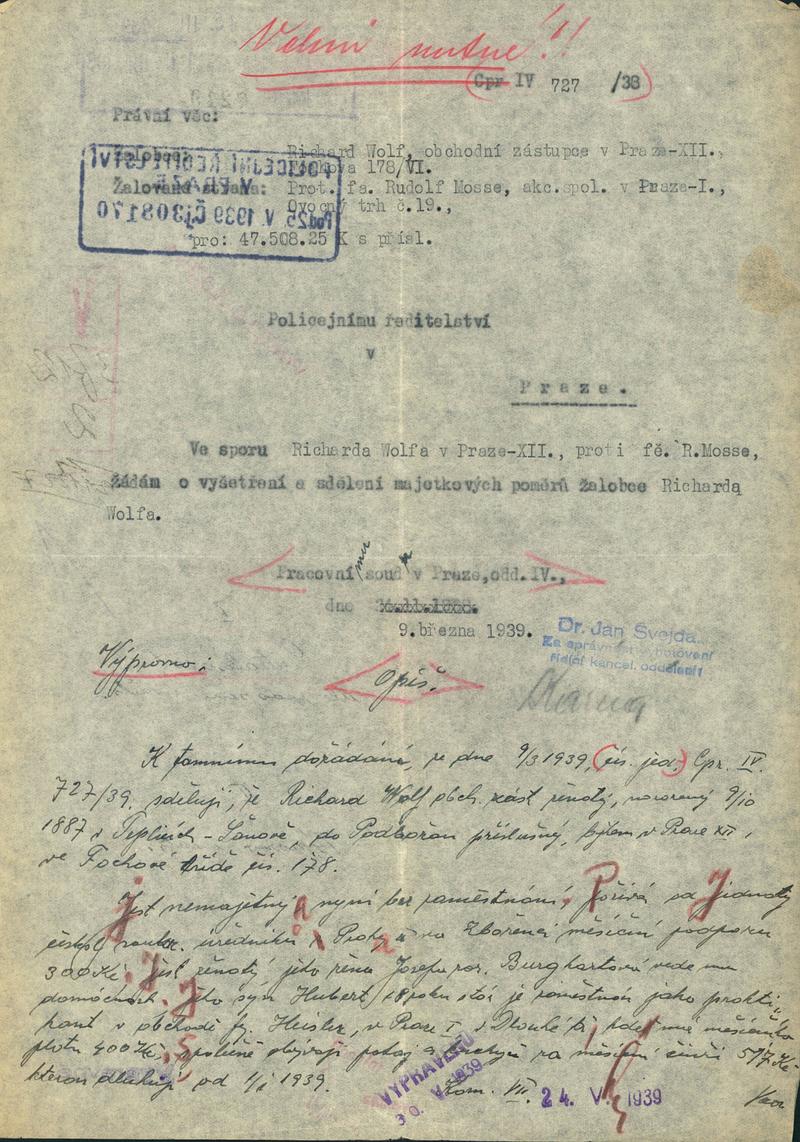 Velmi nutné!!
Cpr IV 727 /38
Právní věc:
Richard Wolf, obchodní zástupce v Praze-XII.,
Fochova 178/VI.
Žalovaná strana: Prot. fa. Rudolf Mosse, akc.spol. v Praze-I.,
Ovocný trh č.19.,
pro: 47.508.25 K s přísl.
POLICEJNÍ ŘEDITELSTVÍ
V PRAZE
Pod. 25. V. 1939 Čj 308170
Policejnímu ředitelství
v
Praze.
Ve sporu Richarda Wolfa v Praze-XII., proti fě. R.Mosse,
žádám o vyšetření a sdělení majetkových poměrů žalobce Richarda
Wolfa.
Pracovnímu soudu v Praze,odd.IV.,
dne
9.března 1939.
Dr. Jan Švejda
Za správnost vyhotovení
řídící kancel. oddělení:
Výpravna:
Opis.
K tamnímu dožádání, ze dne 9/3 1939, čís. jed. Cpr. IV.
727/39, sděluji, že Richard Wolf obch. zást. ženatý, narozený 9/10
1887 v Teplicích - Šanově, do Podbořan příslušný, bytem v Praze XII,
ve Fochově třídě čís. 178.
Jest nemajetný a nyní bez zaměstnání. Požívá od Jednoty
soukr. úředníků v Praze na Zbořenci měsíční podporu
300 Kč. Jest ženatý jeho žena Josefa roz. Burghartová vede mu
domácnost. Jeho syn Hubert 18 roků stár je zaměstnán jako prakti-
kant v obchodě fy. Heisler, v Praze I v Dlouhé tř. kde má měsíčního
platu 400 Kč, společně obývají pokoj a kuchyň za měsíční činži 517 Kč
kterou dluhují od 1/1 1939.
Kom. VII. 24. V. 1939
VYPRAVENO
30. V. 1939